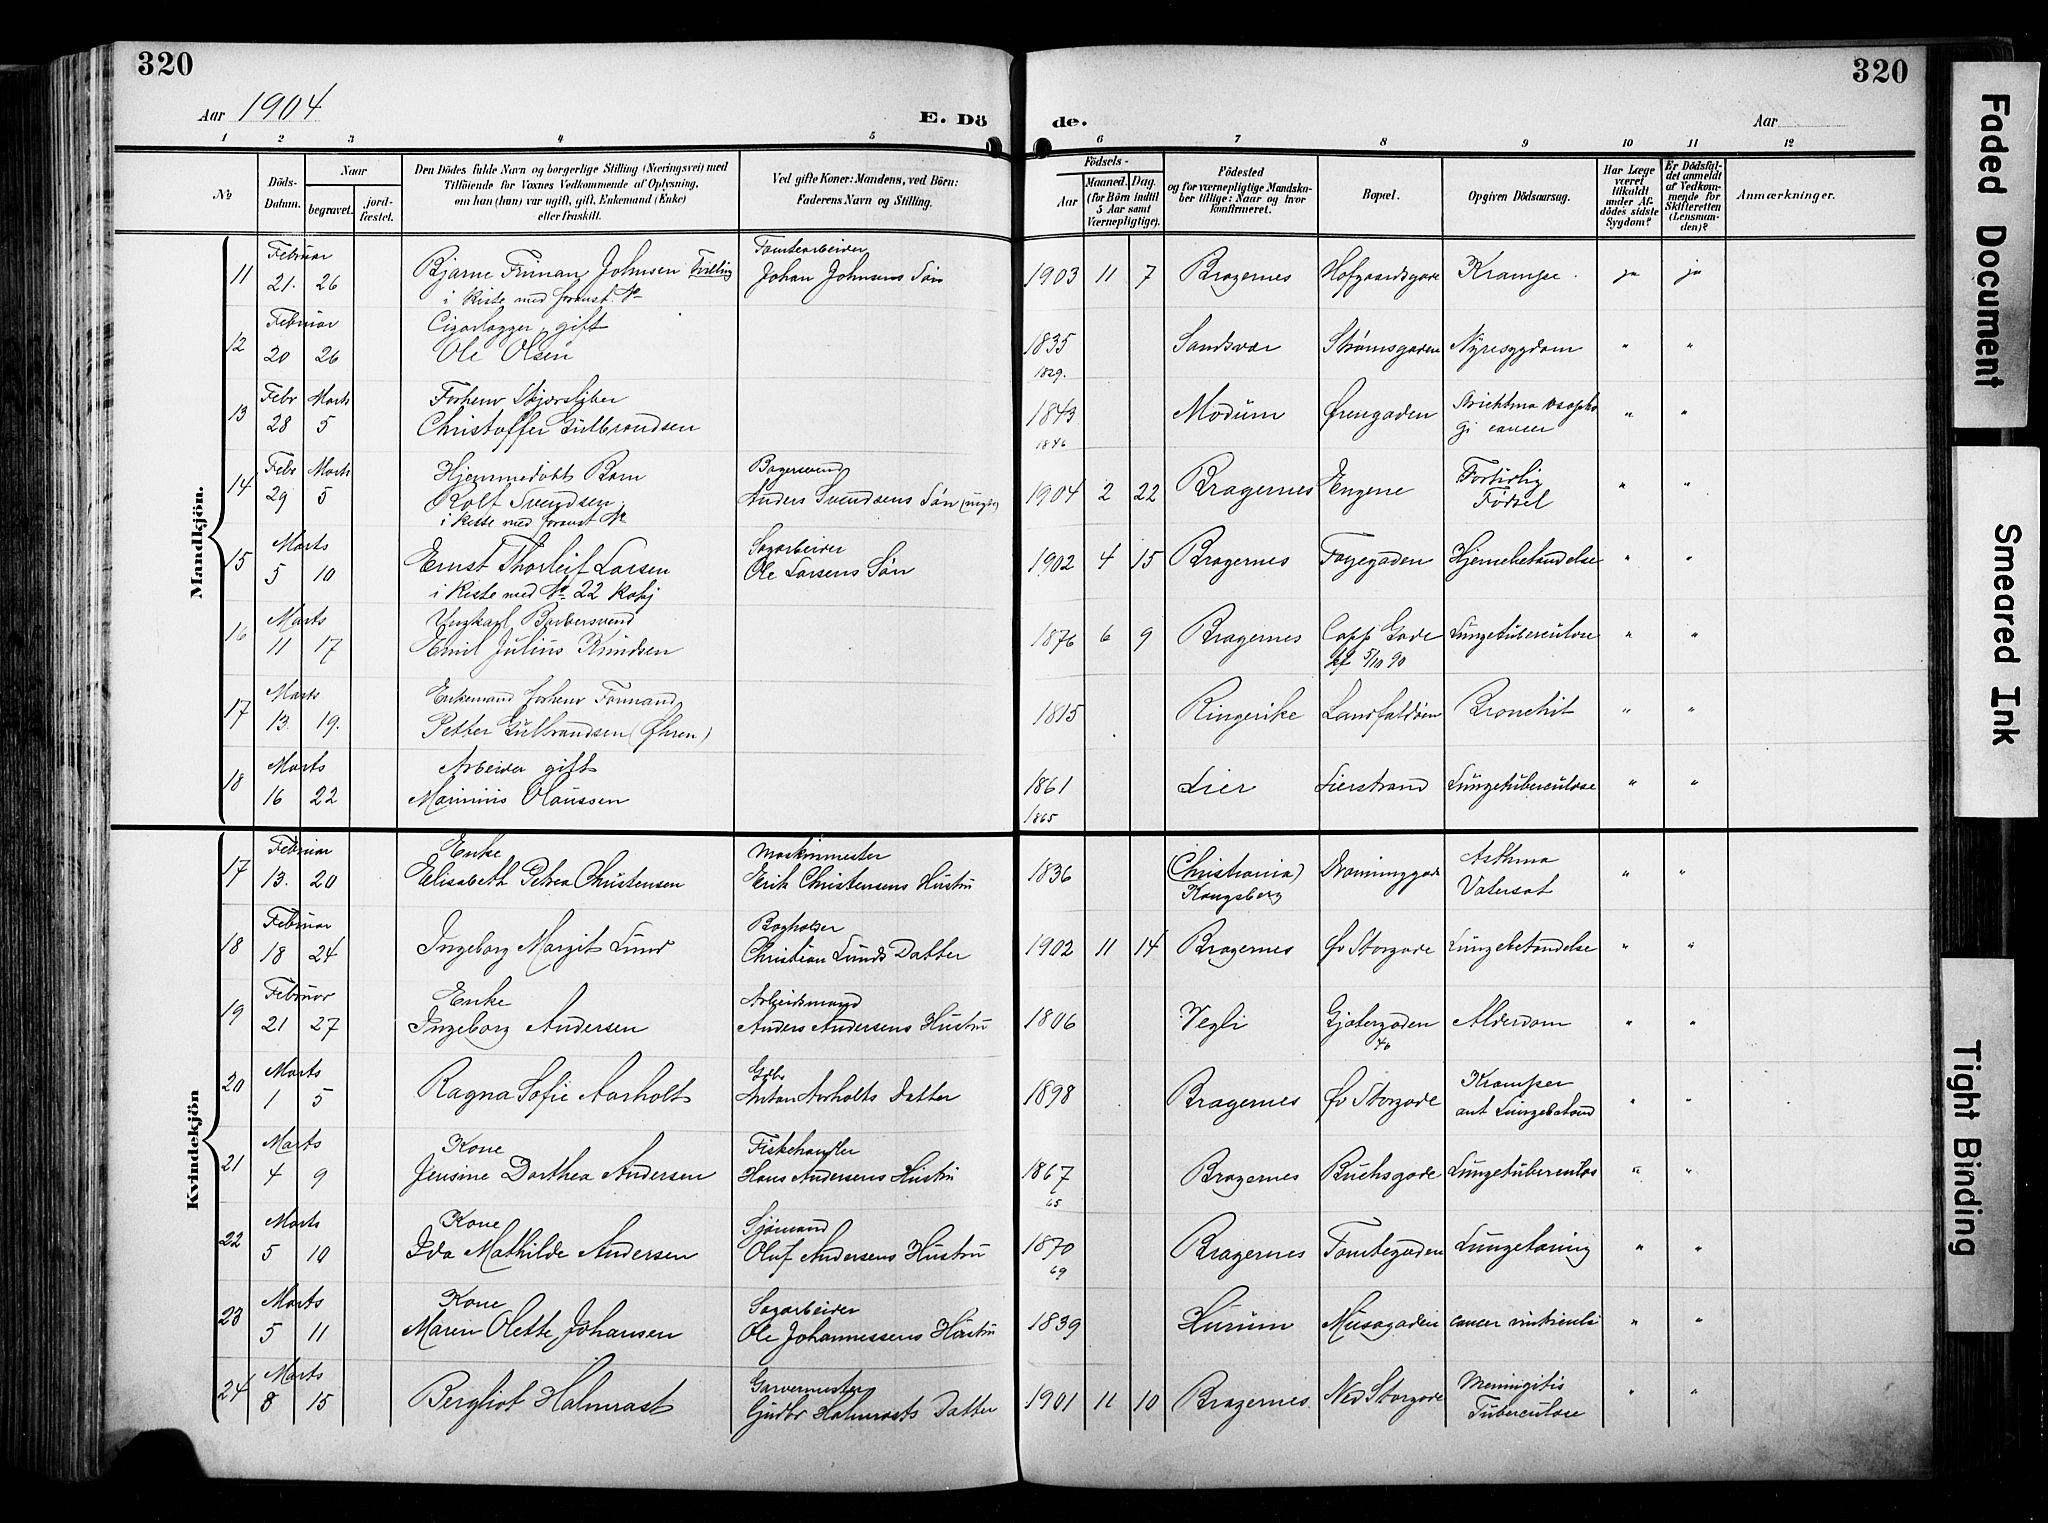 320
320
Aar 1904
E. Dö de.
Aar
1 2 3 4 5 6 7 8 9 10 11 12
No
Döds-Datum.
Naar
begravet.
jord-fæstet.
Den Dödes fulde Navn og borgerlige Stilling (Næringsvei) med
Tilföiende for Voxnes Vedkommende af Oplysning,
om han (hun) var ugift, gift, Enkemand (Enke)
eller fraskilt.
Ved gifte Koner: Mandens, ved Börn:
Faderens Navn og Stilling.
Födsels-
Aar
Maaned. Dag.
(for Börn indtil
5 Aar samt
Værnepligtige).
Födested
og for værnepligtige Mandska-
ber tillige: Naar og hvor
konfirmeret.
Bopæl.
Opgiven Dödsaarsag.
Har Læge
været
tilkaldt
under Af-
dödes sidste
Sygdom?
Er Dödsfal-
det anmeldt
af Vedkom-
mende for
Skifteretten
(Lensman-
den)?
Anmærkninger.
Mandkjön.
11 Februar 21. 26 Bjarne Friman Johnsen Tvilling
i Kiste med foranst. No
Tomtearbeider
Johan Johnsens Søn
1903 11 7 Bragernes Hofgaardsgade Krampe. ja ja
12 Februar 20 26 Cigarlægger, gift
Ole Olsen
1835
1829.
Sandsvær Strømsgaden Nyresygdom " "
13 Febr 28 Marts 5 Forhenv Skjærsliber
Christoffer Gulbrandsen
1843
1846
Modum Øvregaden
cancer " "
14 Febr 29 Marts 5 Hjemmedøbt Barn
Rolf Svendsen
i Kiste med foranst No
Bagersvend
Anders Svendsens Søn
1904 2 22 Bragernes Engene Fortidlig
Fødsel " "
15 Marts 5 10 Ernst Thorleif Larsen
i Kiste med No 22 Kvkj
Sagarbeider
Ole Larsens Søn
1902 4 15 Bragernes Fayegaden Hjernebetændelse " "
16 Marts 11 17 Ungkarl Barbersvend
Emil Julius Knudsen
1876 6 9 Bragernes Capp Gade
kf 5/10 90
Lungetuberculose " "
17 Marts 13. 19. Enkemand forhenv Formand
Petter Gulbrandsen (Øhren)
1815 Ringerike Landfaldøen Bronchit " "
18 Marts 16 22 Arbeider gift
Marinius Olaussen
1861
1865
Lier Lierstrand Lungetuberculose " "
Kvindekjön
17 Februar 13. 20 Enke
Elisabeth Petrea Christensen
Maskinmester
Erik Christensens Hustru
1836 (Christiania)
Kongsberg
Dronninggade Asthma
Vatersot " "
18 Februar 18 24 Ingeborg Margit Lund
Bogholder
Christian Lunds Datter
1902 11 14 Bragernes Øv Storgade Lungebetændelse " "
19 Februar 21 27 Enke
Ingeborg Andersen
Arbeidsmand
Anders Andersens Hustru
1806 Vegli Gjætergaden
46
Alderdom " "
20 Marts 1 5 Ragna Sofie Aarholt
Gdbr
Anton Aarholts Datter
1898 Bragernes Øv Storgade Kramper
ant Lungebetænd " "
21 Marts 4 9 Kone
Jensine Dorthea Andersen
Fiskehandler
Hans Andersens Hustru
1867
65
Bragernes Buchsgade Lungetuberculos " "
22 Marts 5 10 Kone
Ida Mathilde Andersen
Sjømand
Oluf Andersens Hustru
1870
69
Bragernes Tomtegaden Lungetæring " "
23 Marts 5 11 Kone
Maren Olette Johansen
Sagarbeider
Ole Johannessens Hustru
1839 Hurum Musagaden cancer ventriculi " "
24 Marts 8 15 Bergliot Halmrast
Garvermester
Gudbr Halmrasts Datter
1901 11 10 Bragernes. Ned Storgade Meningitis
Tuberculose " "
Faded Document
Smeared Ink
Tight Binding